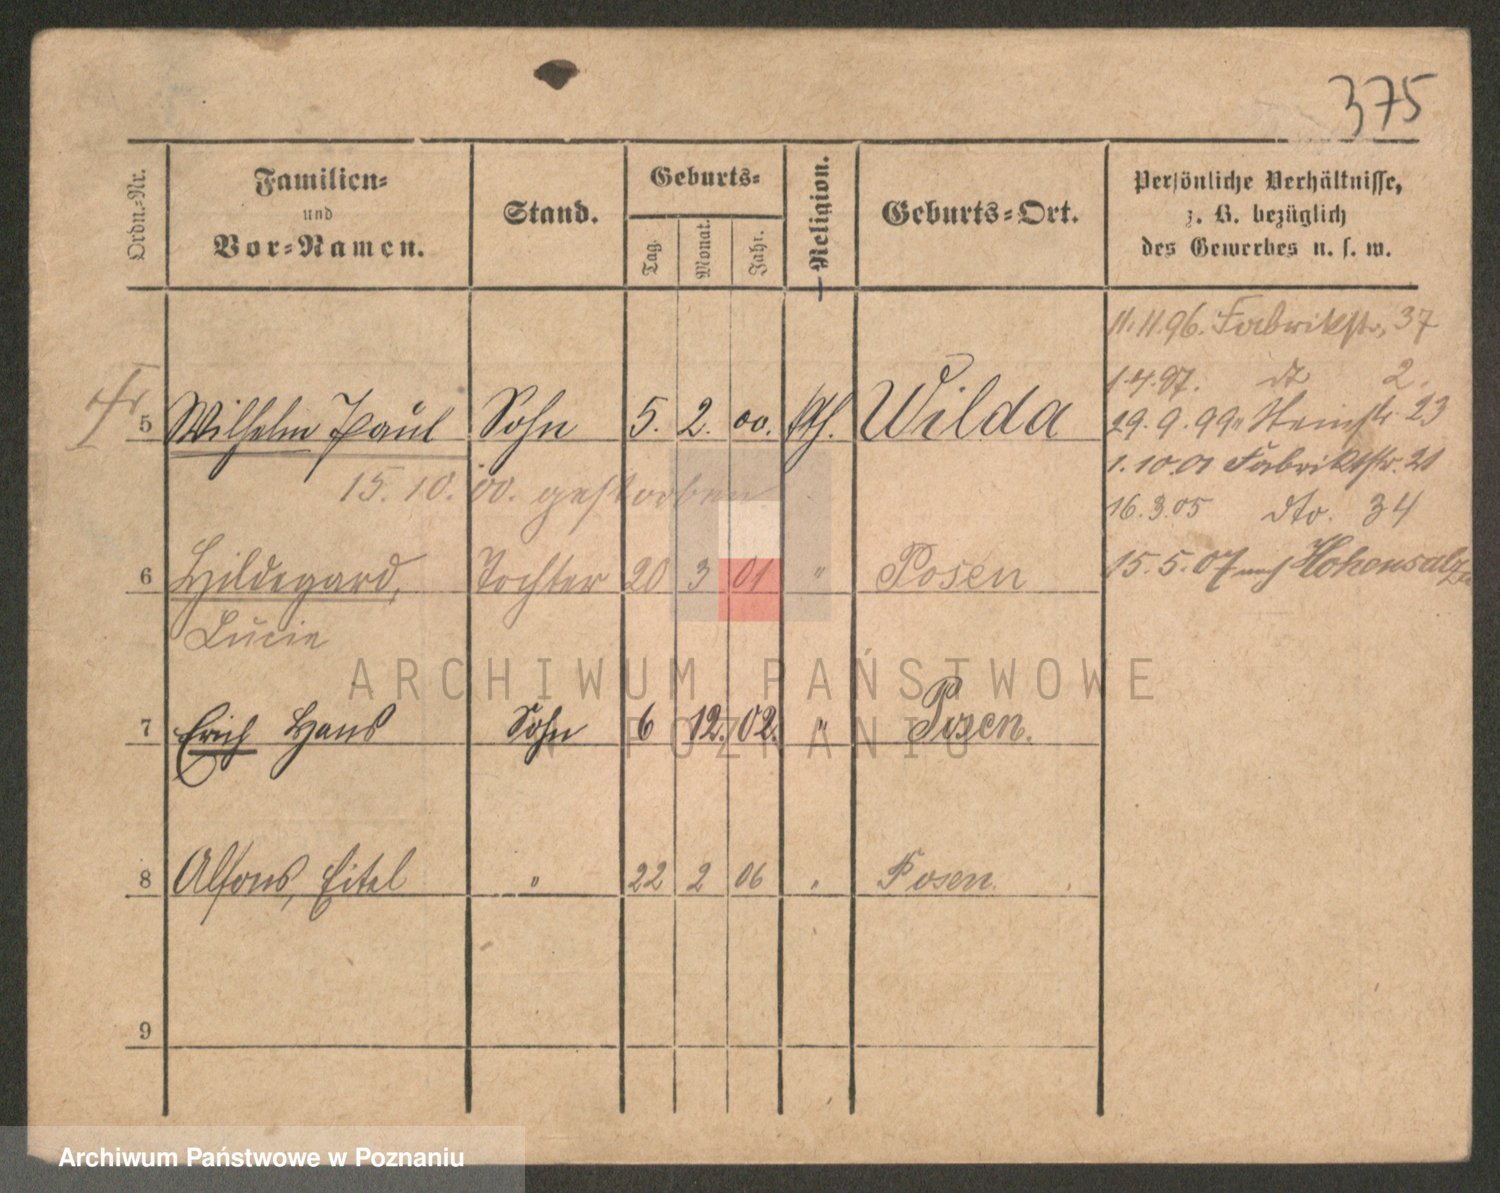 375
Ordn.-Nr. Familien- und Vor-Namen. Stand. Geburts- Tag. Monat. Jahr. Religion. Geburts-Ort. Persönliche Verhältnisse, z. B. bezüglich des Gewerbes u. s. w.
11.11.96. Fabrikstr. 37
1.4.97. dt 2.
5 Wilhelm Paul Sohn 5. 2. 00. kth. Wilda
29.9.99 23
15.10.00. gestorben
1.10.01 Fabrikstr. 21
16.3.05 dto. 34
6 Hildegard, Tochter 20 3 01 " Posen
Lucie
15.5.07 nach Hohensalza
7 Erich Hans Sohn 6 12. 02. " Posen.
8 Alfons, Eitel " 22 2 06 " Posen.
9
ARCHIWUM PAŃSTWOWE
W POZNANIU
Archiwum Państwowe w Poznaniu